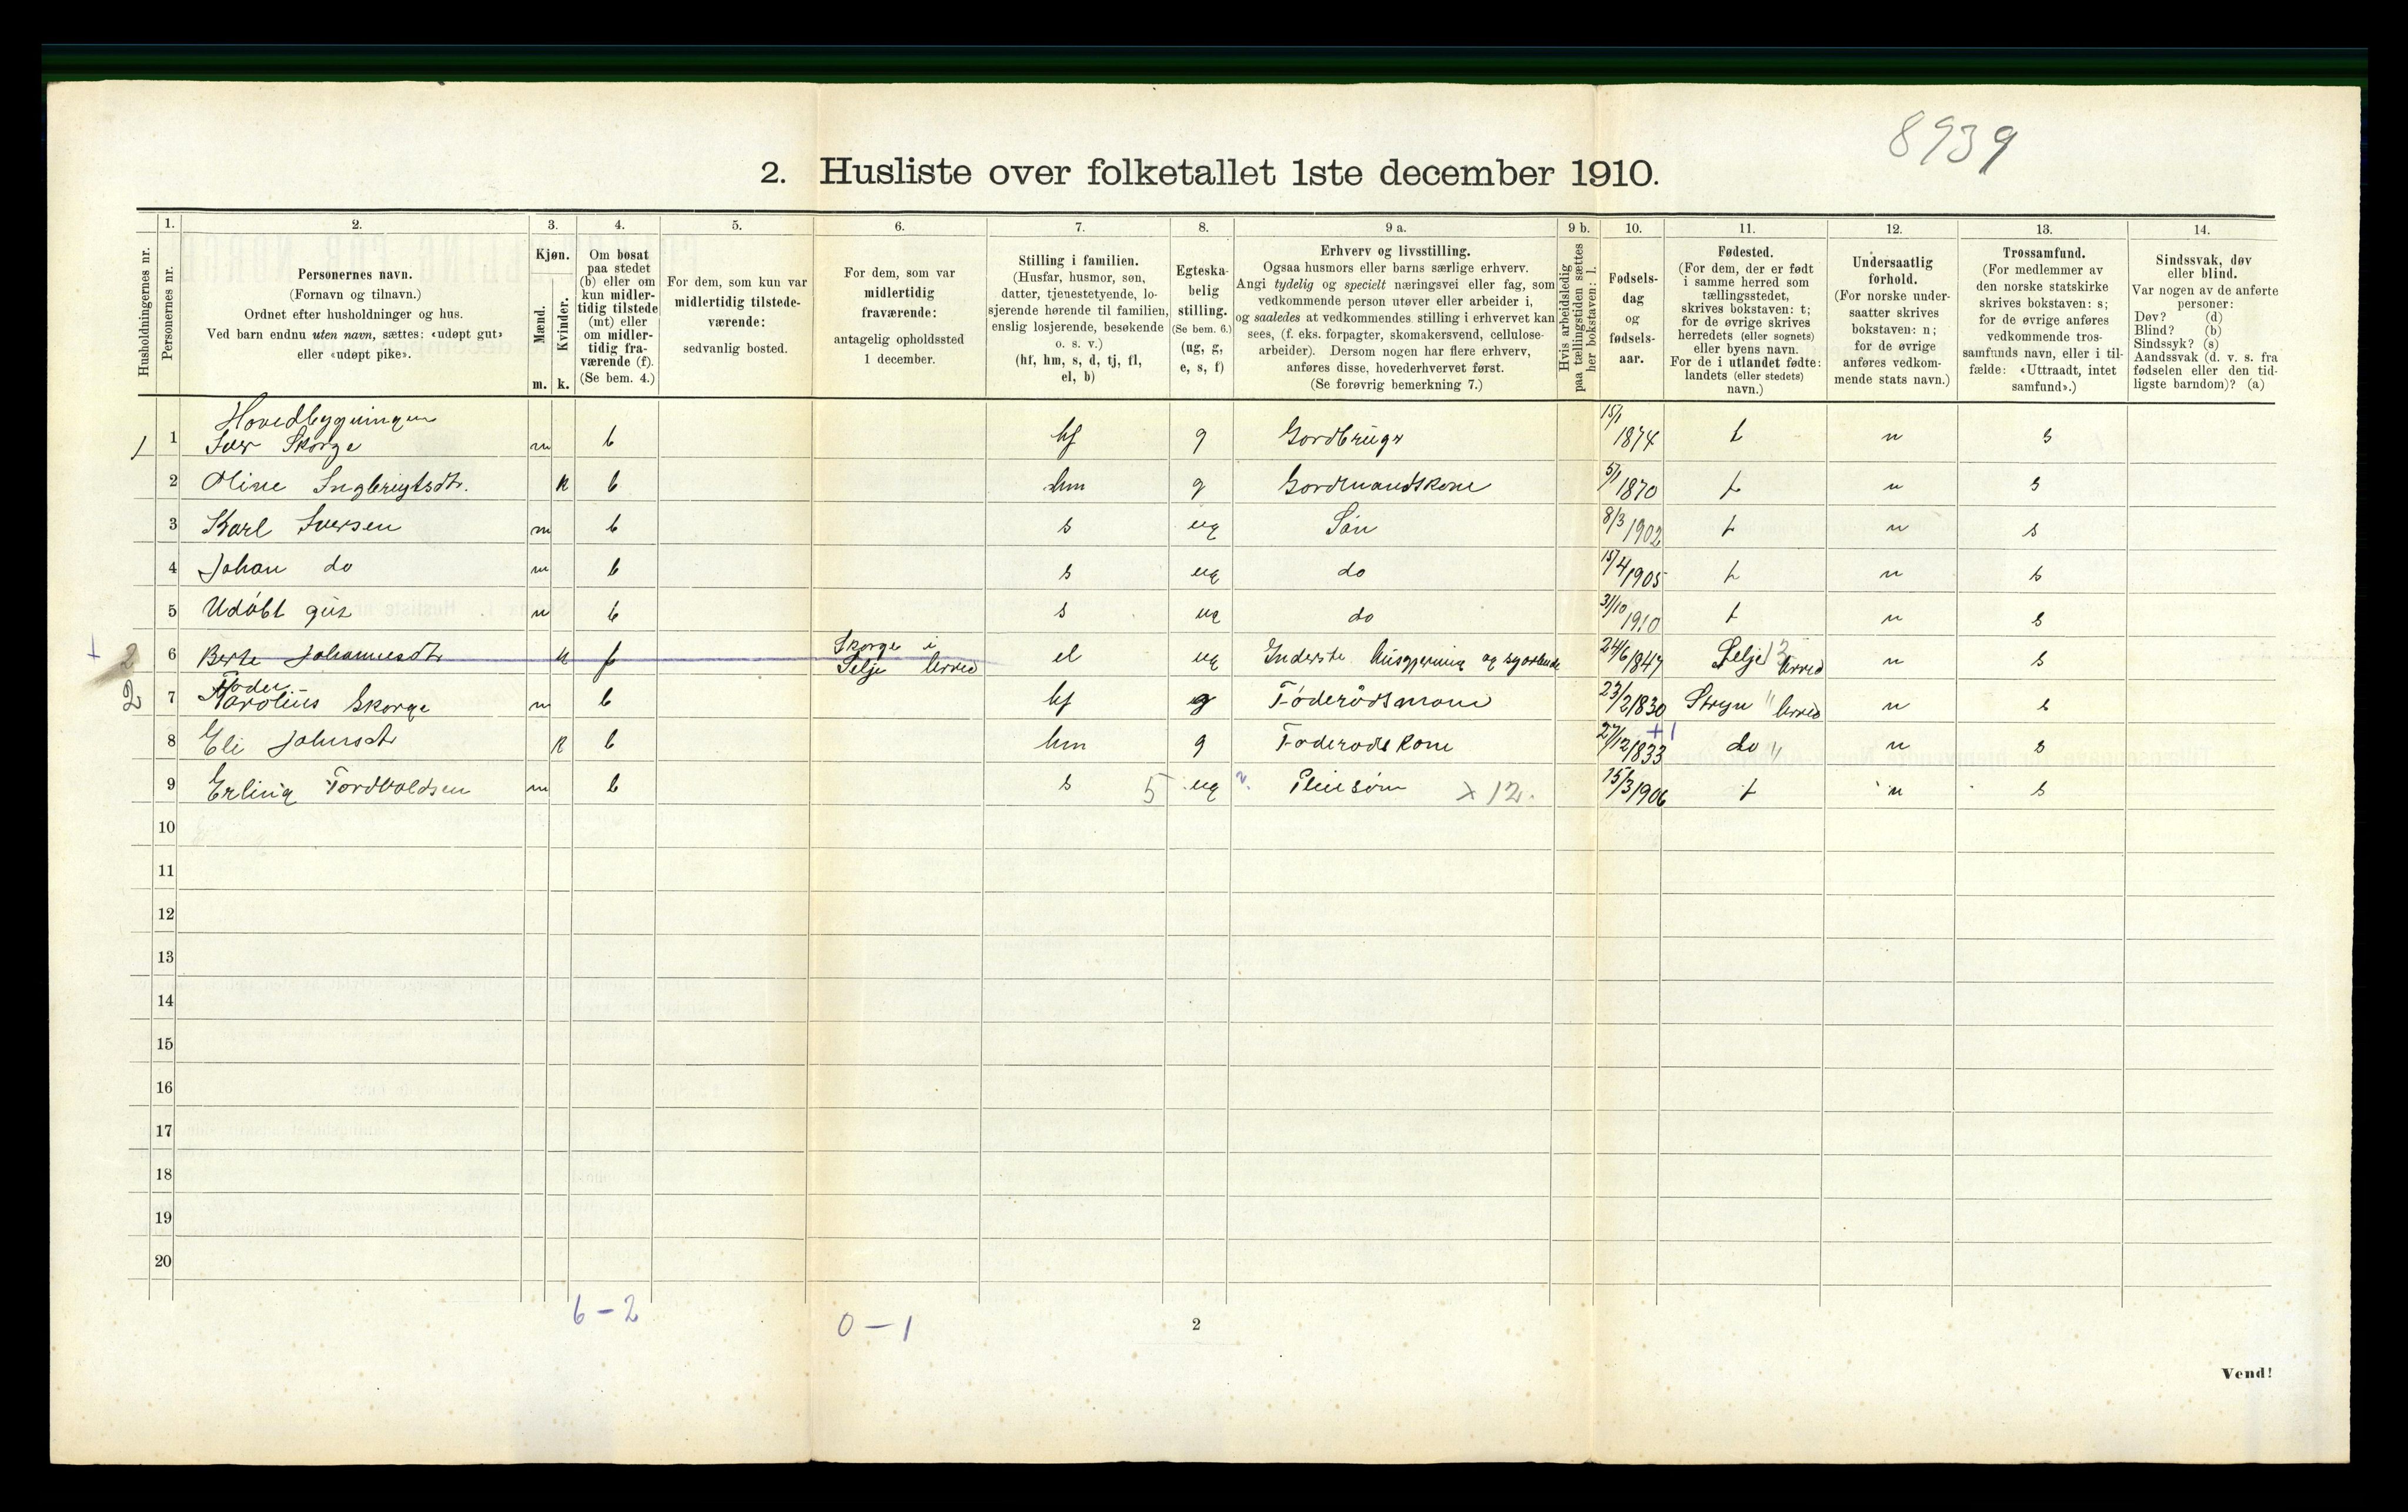 8939
2. Husliste over folketallet 1ste december 1910.
Husholdningernes nr.
1.
Personernes nr.
2.
Personernes navn.
(Fornavn og tilnavn.)
Ordnet efter husholdninger og hus.
Ved barn endnu uten navn, sættes: «udøpt gut»
eller «udøpt pike».
3.
Kjøn.
Mænd.
Kvinder.
m. k.
4.
Om bosat
paa stedet
(b) eller om
kun midler-
tidig tilstede
(mt) eller
om midler-
tidig fra-
værende (f).
(Se bem. 4.)
5.
For dem, som kun var
midlertidig tilstede-
værende:
sedvanlig bosted.
6.
For dem, som var
midlertidig
fraværende:
antagelig opholdssted
1 december.
7.
Stilling i familien.
(Husfar, husmor, søn,
datter, tjenestetyende, lo-
sjerende hørende til familien,
enslig losjerende, besøkende
o. s. v.)
(hf, hm, s, d, tj, fl,
el, b)
8.
Egteska-
belig
stilling.
(Se bem. 6.)
(ug, g,
e, s, f)
9 a.
Erhverv og livsstilling.
Ogsaa husmors eller barns særlige erhverv.
Angi tydelig og specielt næringsvei eller fag, som
vedkommende person utøver eller arbeider i,
og saaledes at vedkommendes stilling i erhvervet kan
sees, (f. eks. forpagter, skomakersvend, cellulose-
arbeider). Dersom nogen har flere erhverv,
anføres disse, hovederhvervet først.
(Se forøvrig bemerkning 7.)
9 b.
Hvis arbeidsledig
paa tællingstiden sættes
her bokstaven: l.
10.
Fødsels-
dag
og
fødsels-
aar.
11.
Fødested.
(For dem, der er født
i samme herred som
tællingsstedet,
skrives bokstaven: t;
for de øvrige skrives
herredets (eller sognets)
eller byens navn.
For de i utlandet fødte:
landets (eller stedets)
navn.)
12.
Undersaatlig
forhold.
(For norske under-
saatter skrives
bokstaven: n;
for de øvrige
anføres vedkom-
mende stats navn.)
13.
Trossamfund.
(For medlemmer av
den norske statskirke
skrives bokstaven: s;
for de øvrige anføres
vedkommende tros-
samfunds navn, eller i til-
fælde: «Uttraadt, intet
samfund».)
14.
Sindssvak, døv
eller blind.
Var nogen av de anførte
personer:
Døv? (d)
Blind? (b)
Sindssyk? (s)
Aandssvak (d. v. s. fra
fødselen eller den tid-
ligste barndom)? (a)
Hovedbygningen
1 1 Iver Skorge m b hf g Gordbruger 15/1 1874 t n s
2 Oline Ingbrigtsdtr. k b hm g Gordmandskone 5/1 1870 t n s
3 Karl Iversen m b s ug Søn 8/3 1902 t n s
4 Johan do m b s ug do 15/4 1905 t n s
5 Udøbt gut m b s ug do 31/10 1910 t n s
+ 2 6 Berte Johannesdtr k f Skorge i Selje herred el ug Inderste Husgjerning og syarbeide 24/6 1847 Selje herred n s
2 Fader
7 Karolius Skorge m b hf g Føderådsmann 23/2 1830 Stryn " herred n s
8 Eli Johnsdtr k b hm gFøderodskone 27/12 1833 +1 do " n s
9 Erling Tordvaldsen m b s 5 ug Pleiesøn x 12. 15/3 1906 t n s
10
11
12
13
14
15
16
17
18
19
20
6 – 2
0 – 1
2
Vend!